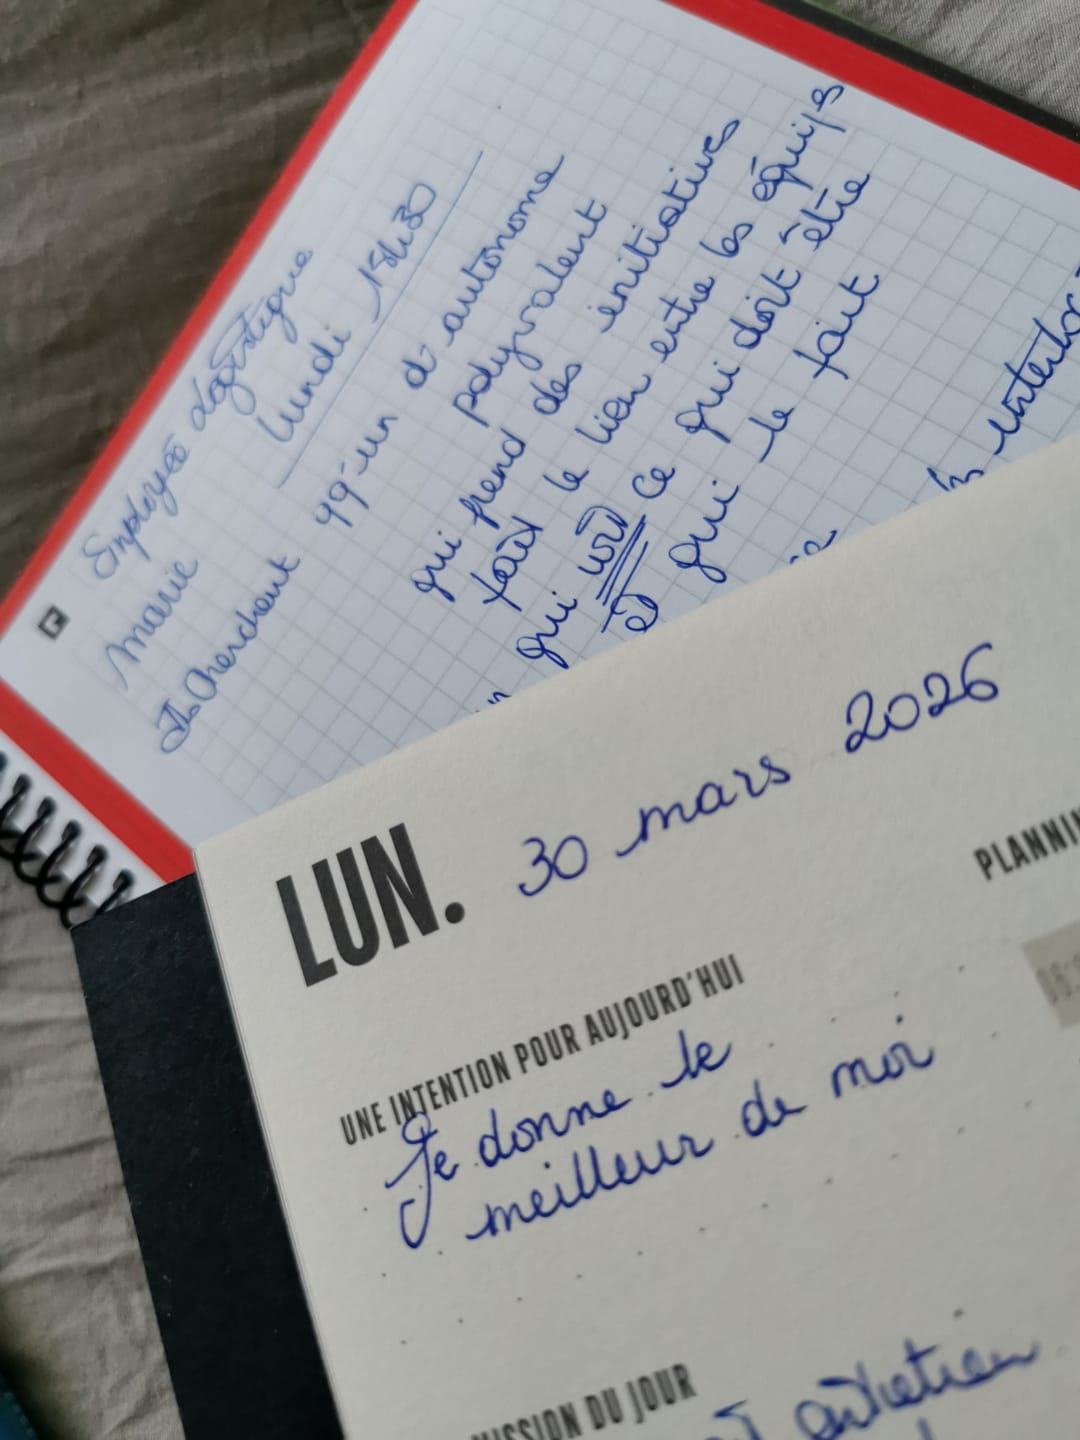 Employée logistique
Marie lundi 18h30
Ils cherchent qq-un d'autonome
polyvalent
qui prend des initiatives
fait le lien entre les équipes
qui voit ce qui doit être
et qui le fait
LUN. 30 mars 2026
PLANNIN
UNE INTENTION POUR AUJOURD'HUI
Je donne le
meilleur de moi
MISSION DU JOUR
entretien